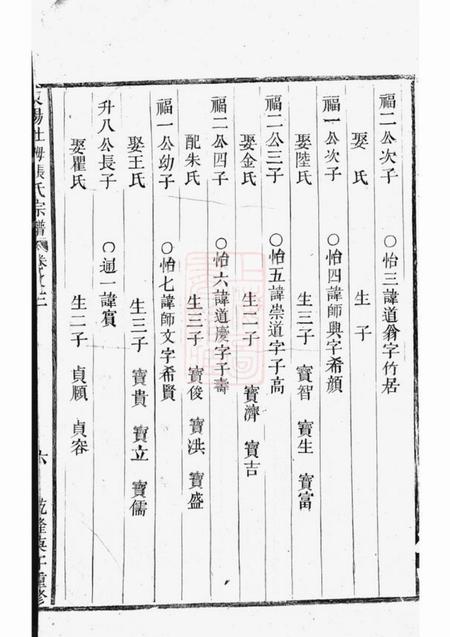 福二公次子 〇怡三諱道翁字竹居
娶 氏 生 子
福一公次子 〇怡四諱師與字希顔
娶陸氏 生三子 寶智 寶生 寶富
福二公三子 〇怡五諱崇道字子高
娶金氏 生二子 寶濟 寶吉
福二公四子 〇怡六諱道慶字子壽
配朱氏 生三子 寶俊 寶洪 寶盛
福一公幼子 〇怡七諱師文字希賢
娶王氏 生三子 寶貴 寶立 寶儒
升八公長子 〇通一諱賓
娶瞿氏 生二子 貞願 貞容
張氏宗譜 卷之二 六 乾隆庚子重修